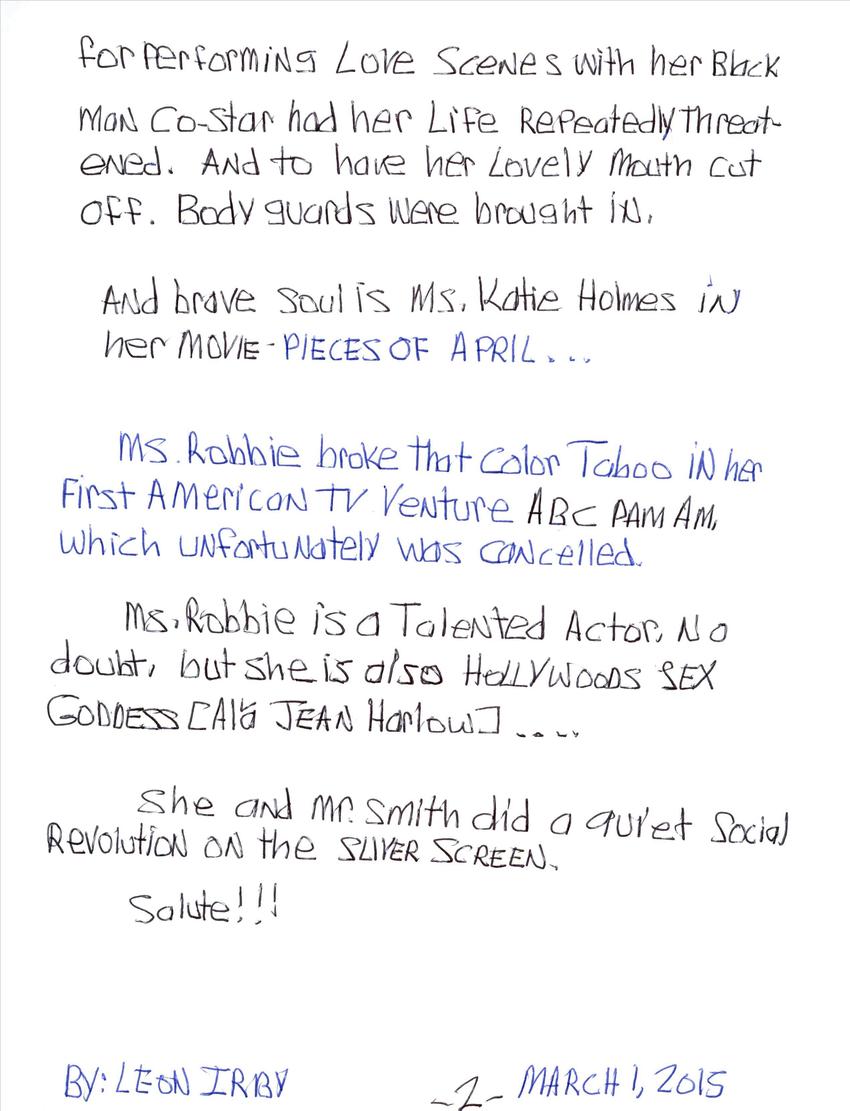 for performing Love Scenes with her Black
man Co-Star had her Life Repeatedly Threat-
ened. And to have her Lovely Mouth cut
off. Body guards were brought in.
And brave soul is Ms. Katie Holmes in
her MOVIE - PIECES OF APRIL...
Ms. Robbie broke that Color Taboo in her
First American TV Venture ABC PAM AM,
which unfortunately was cancelled.
Ms. Robbie is a Talented Actor, No
doubt, but she is also HOLLYWOODS SEX
GODDESS [Ala JEAN Harlow] ....
She and Mr. Smith did a quiet Social
Revolution on the SLIVER SCREEN.
Salute!!!
BY: LEON IRBY -2- MARCH 1, 2015